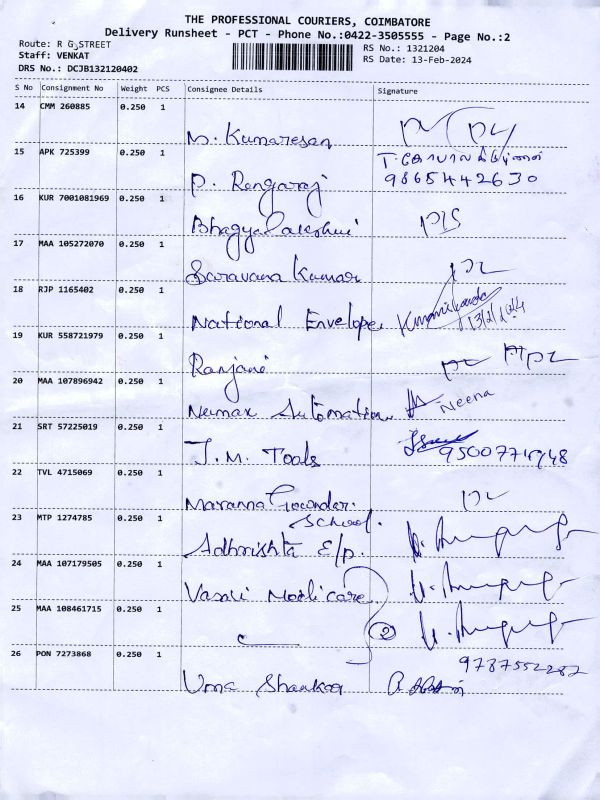 THE PROFESSIONAL COURIERS, COIMBATORE
Delivery Runsheet - PCT - Phone No.:0422-3505555 - Page No.:2
Route: R G STREET
RS No.: 1321204
Staff: VENKAT
RS Date: 13-Feb-2024
DRS No.: DCJB132120402
S No Consignment No Weight PCS Consignee Details Signature
14 CMM 260885 0.250 1
M. Kumaresan
15 APK 725399 0.250 1
P. Rengaraj 9865442630
16 KUR 7001081969 0.250 1
Bhagyalakshmi
17 MAA 105272070 0.250 1
Saravana Kumar
18 RJP 1165402 0.250 1
National Envelope 13/2/24
19 KUR 558721979 0.250 1
Ranjani
20 MAA 107896942 0.250 1
Numax Automation Neena
21 SRT 57225019 0.250 1
J.M. Tools
22 TVL 4715069 0.250 1
Maranna Gowonder
School.
23 MTP 1274785 0.250 1
Adhrishta E/p.
24 MAA 107179505 0.250 1
Vasli Medicare
25 MAA 108461715 0.250 1
2
26 PON 7273868 0.250 1
9787552282
Uma Shankar